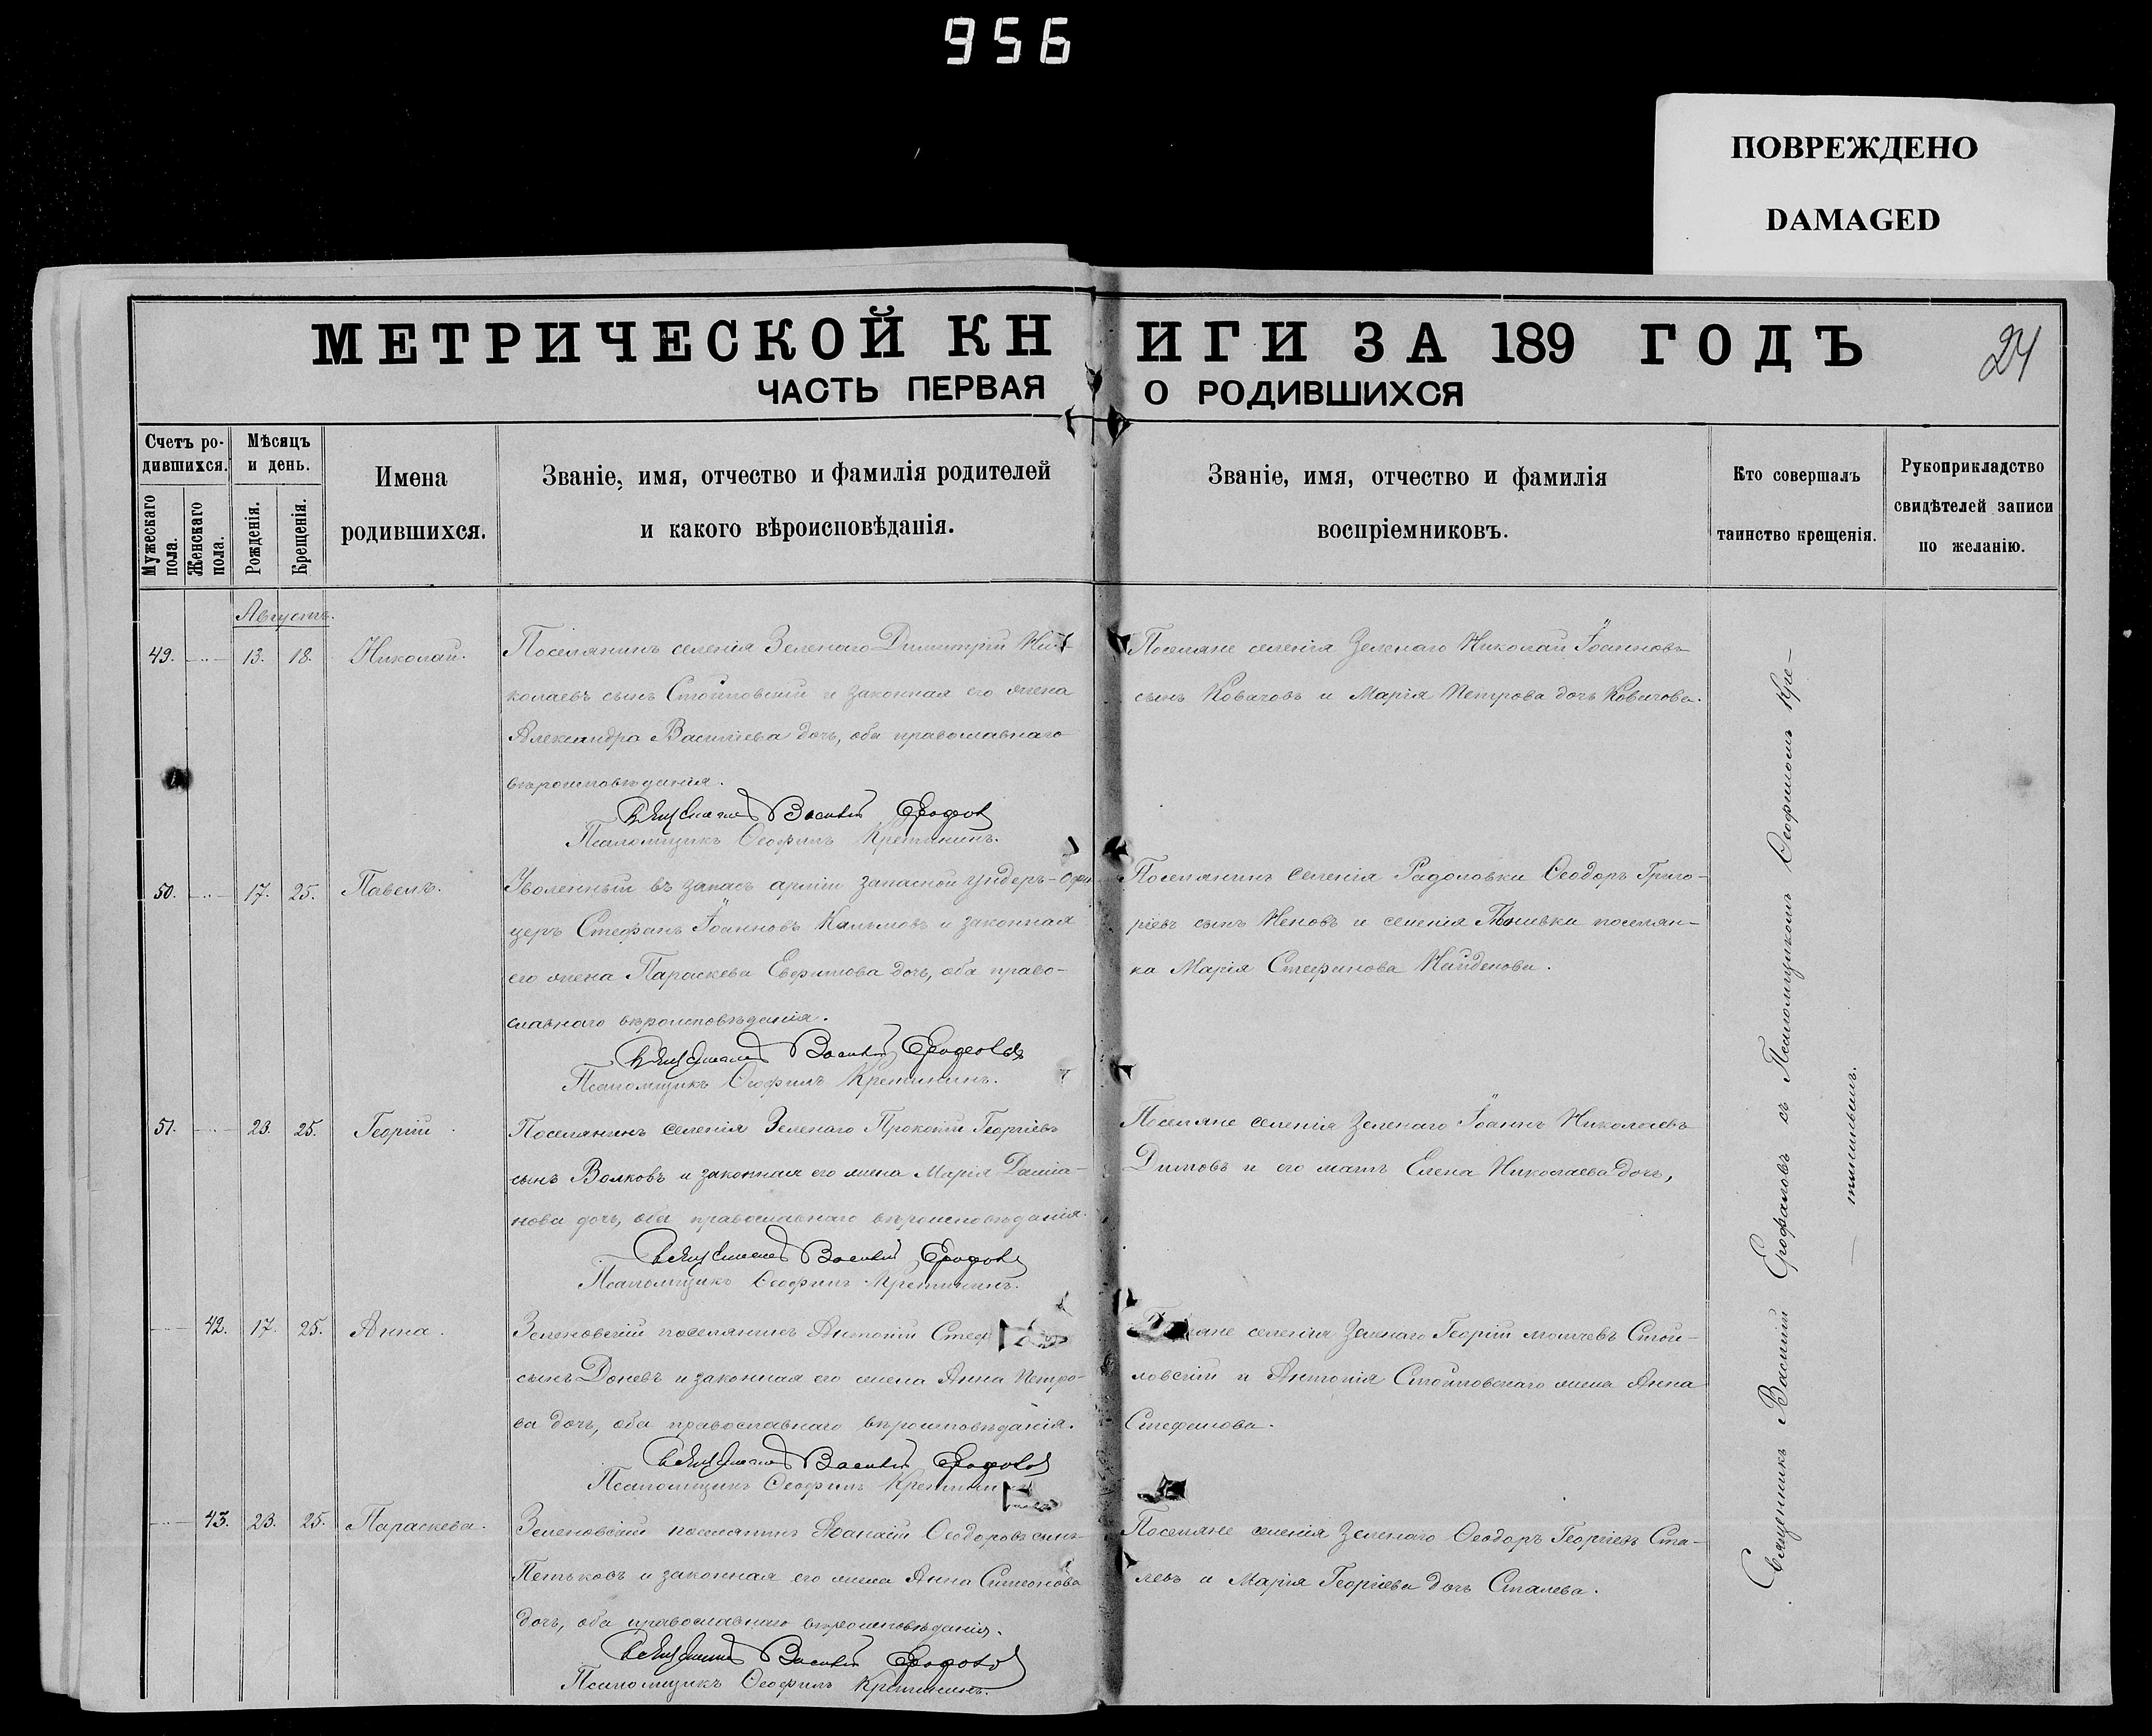 956
ПОВРЕЖДЕНО
DAMAGED
МЕТРИЧЕСКОЙ КНИГИ ЗА 189 ГОДЪ
24
ЧАСТЬ ПЕРВАЯ О РОДИВШИХСЯ
Счетъ ро-
дившихся.
Мужескаго пола.
Женскаго пола.
Мѣсяцъ
и день.
Рожденія.
Крещенія.
Имена
родившихся.
Званіе, имя, отчество и фамилія родителей
и какого вѣроисповѣданія.
Званіе, имя, отчество и фамилія
воспріемниковъ.
Кто совершалъ
таинство крещенія.
Рукоприкладство
свидѣтелей записи
по желанію.
Августъ.
49. 13. 18. Николай.
Поселянинъ селенія Зеленаго Димитрій Ни-
колаевъ сынъ Стойловскій и законная его жена
Александра Василіева дочь, оба православнаго
вѣроисповѣданія.
Священникъ Василій
Псаломщикъ Ѳеофилъ Кретининъ.
Поселяне селенія Зеленаго Николай Іоанновъ
сынъ Ковачовъ и Марія Петрова дочь Ковачова.
50. 17. 25. Павелъ.
Уволенный въ запасъ арміи запасной ундеръ-офи-
церъ Стефанъ Іоанновъ и законная
его жена Параскева Евфимова дочь, оба право-
славнаго вѣроисповѣданія.
Священникъ Василій
Псаломщикъ Ѳеофилъ Кретининъ.
Поселянинъ селенія Радоловки Ѳеодоръ Григо-
ріевъ сынъ Неновъ и селенія поселян-
ка Марія Стефанова Найденова.
51. 23. 25. Георгій
Поселянинъ селенія Зеленаго Прокопій Георгіевъ
сынъ Волковъ и законная его жена Марія Даміа-
нова дочь, оба православнаго вѣроисповѣданія.
Священникъ Василій
Псаломщикъ Ѳеофилъ Кретининъ.
Поселяне селенія Зеленаго Іоаннъ Николаевъ
Димовъ и его мать Елена Николаева дочь,
42. 17. 25. Анна.
Зеленовскій поселянинъ Антоній Стеф
сынъ Доневъ и законная его жена Анна Петро-
ва дочь, оба православнаго вѣроисповѣданія.
Священникъ Василій
Псаломщикъ Ѳеофилъ
селенія Зеленаго Георгій Стой-
ловскій и Антонія Стойловскаго жена Анна
Стефанова.
43. 23. 25. Параскева.
Зеленовскій поселянинъ Ѳеодоровъ сынъ
Петьковъ и законная его жена Анна Симеонова
дочь, оба православнаго вѣроисповѣданія.
Священникъ Василій
Псаломщикъ Ѳеофилъ Кретининъ.
Поселяне селенія Зеленаго Ѳеодоръ Георгіевъ Ста-
левъ и Марія Георгіева дочь Сталева.
Священникъ Василій съ Псаломщикомъ Ѳеофиломъ Кре-
тининымъ.